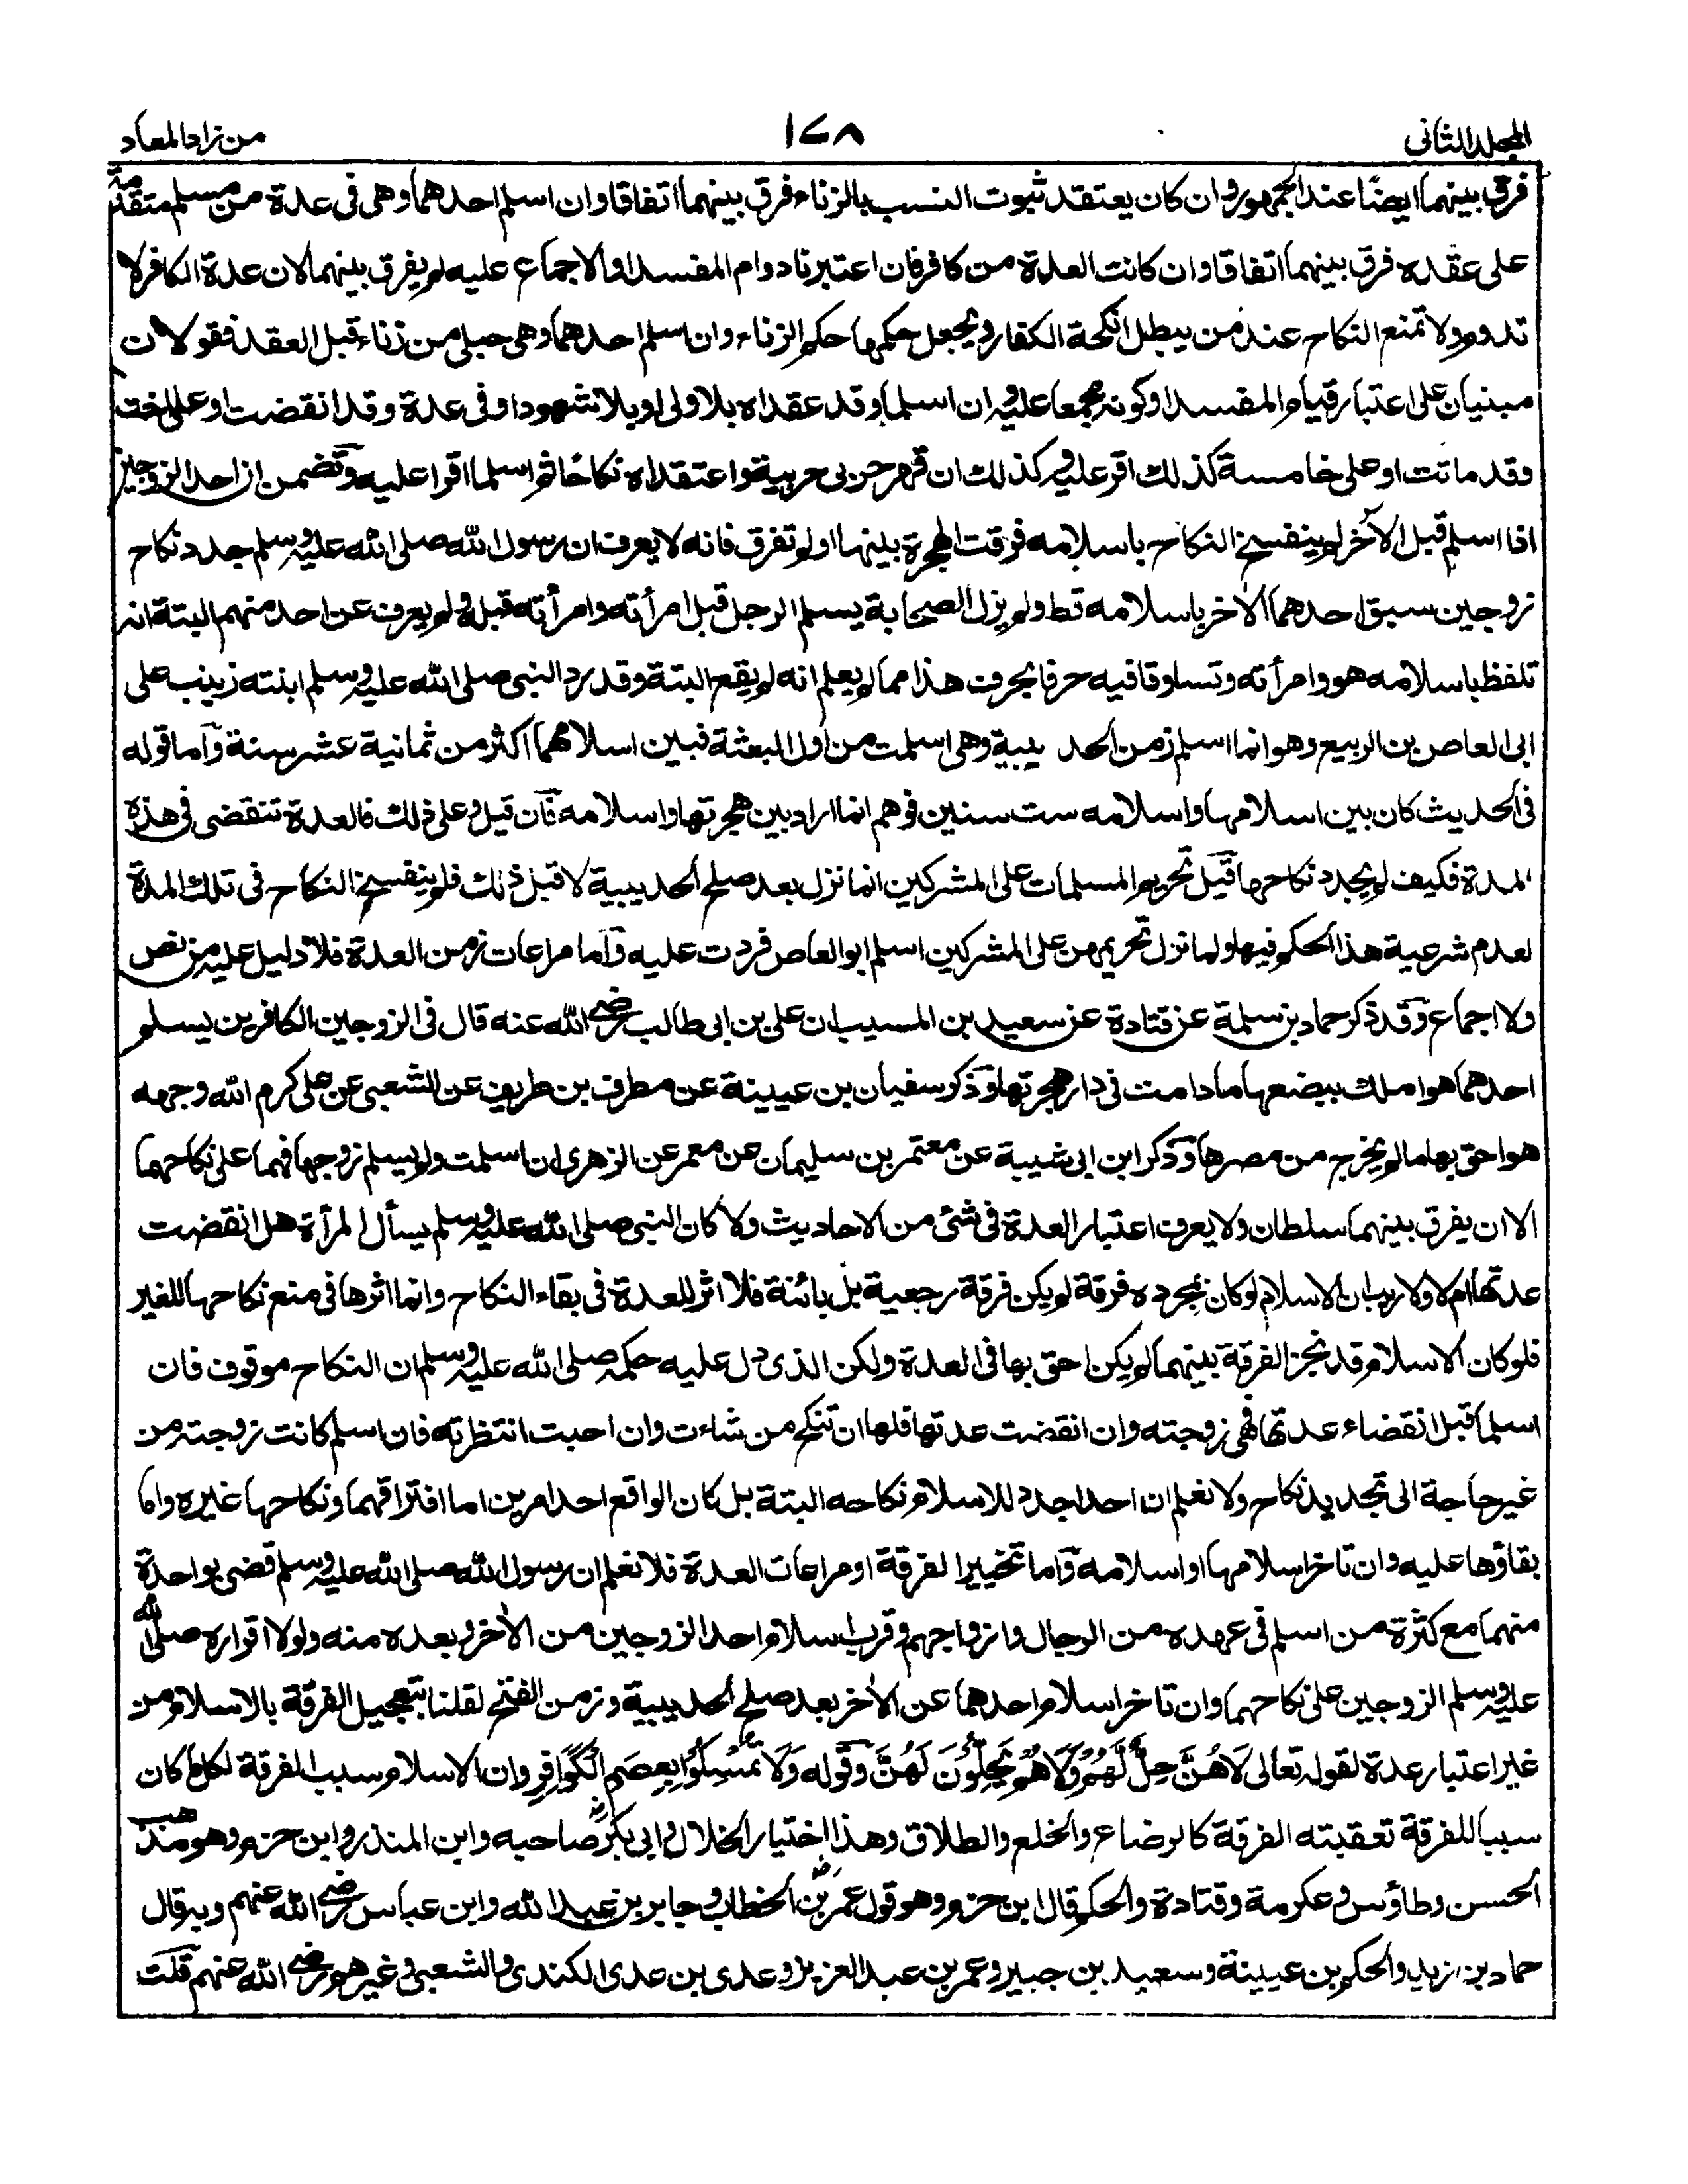 المجلد الثانی
١٧٨
من زاد المعاد
فرق بينهما ايضًا عند الجمهور وان كان يعتقد ثبوت النسب بالزناء فرق بينهما اتفاقا وان اسلم احدهما وهى فى عدة من مسلم متقدمة
على عقده فرق بينهما اتفاقا وان كانت العدة من كافر فان اعتبرنا دوام المفسد او الاجماع عليه لم يفرق بينهما لان عدة الكافر لا
تدوم ولا تمنع النكاح عند من يبطل انكحة الكفار ويجعل حكمها حكم الزناء وان اسلم احدهما وهى حبلى من زناء قبل العقد فقولان
مبنيان على اعتبار قيام المفسد او كونه مجمعا عليه وان اسلما وقد عقداه بلا ولى او بلا شهود او فى عدة وقد انقضت او على اخت
وقد ماتت او على خامسة كذلك اقر عليه وكذلك ان قهر حربى حربية واعتقداه نكاحًا ثم اسلما اقرا عليه وتضمن ان احد الزوجين
اذا اسلم قبل الآخر لم ينفسخ النكاح باسلامه فرقت الهجرة بينهما او لم تفرق فانه لا يعرف ان رسول الله صلى الله عليه وسلم جدد نكاح
زوجين سبق احدهما الاخر باسلامه قط ولم يزل الصحابة يسلم الرجل قبل امرأته وامرأته قبله ولم يعرف عن احد منهم البتة انه
تلفظ باسلامه هو وامرأته وتساوقا فيه حرفا بحرف هذا مما يعلم انه لم يقع البتة وقد رد النبى صلى الله عليه وسلم ابنته زينب على
ابى العاص بن الربيع وهو انما اسلم زمن الحديبية وهى اسلمت من اول البعثة فبين اسلامهما اكثر من ثمانية عشر سنة وآما قوله
فى الحديث كان بين اسلامها واسلامه ست سنين فوهم انما اراد بين هجرتها واسلامه فآن قيل وعلى ذلك فالعدة تنقضى فى هذه
المدة فكيف لم يجدد نكاحها قيل تحريم المسلمات على المشركين انما نزل بعد صلح الحديبية لا قبل ذلك فلم ينفسخ النكاح فى تلك المدة
لعدم شرعية هذا الحكم فيها ولما نزل تحريمهن على المشركين اسلم ابو العاص فردت عليه وآما مراعات زمن العدة فلا دليل عليه من نص
ولا اجماع وقد ذكر حماد بن سلمة عن قتادة عن سعيد بن المسيب ان على بن ابى طالب رضى الله عنه قال فى الزوجين الكافرين يسلم
احدهما هو املك ببضعها ما دامت فى دار هجرتها وذكر سفيان بن عيينة عن مطرف بن طريف عن الشعبى عن على كرم الله وجهه
هو احق بها ما لم يخرج من مصرها وذكر ابن ابى شيبة عن معتمر بن سليمان عن معمر عن الزهرى ان اسلمت ولم يسلم زوجها فهما على نكاحهما
الا ان يفرق بينهما سلطان ولا يعرف اعتبار العدة فى شئ من الاحاديث ولا كان النبى صلى الله عليه وسلم يسأل المرأة هل انقضت
عدتها ام لا ولا ريب ان الاسلام لو كان بمجرده فرقة لم يكن فرقة رجعية بل بائنة فلا اثر للعدة فى بقاء النكاح وانما اثرها فى منع نكاحها للغير
فلو كان الاسلام قد نجز الفرقة بينهما لم يكن احق بها فى العدة ولكن الذى دل عليه حكمه صلى الله عليه وسلم ان النكاح موقوف فان
اسلما قبل انقضاء عدتها فهى زوجته وان انقضت عدتها فلها ان تنكح من شاءت وان احبت انتظرته فان اسلم كانت زوجته من
غير حاجة الى تجديد نكاح ولا نعلم ان احدا جدد للاسلام نكاحه البتة بل كان الواقع احد امرين اما افتراقهما ونكاحها غيره واما
بقاؤها عليه وان تاخر اسلامها او اسلامه وآما تخيير الفرقة او مراعات العدة فلا نعلم ان رسول الله صلى الله عليه وسلم قضى بواحدة
منهما مع كثرة من اسلم فى عهده من الرجال وازواجهم وقرب اسلام احد الزوجين من الاخر وبعده منه ولولا اقراره صلى الله
عليه وسلم الزوجين على نكاحهما وان تاخر اسلام احدهما عن الاخر بعد صلح الحديبية وزمن الفتح لقلنا بتعجيل الفرقة بالاسلام من
غير اعتبار عدة لقوله تعالى لَاهُنَّ حِلٌّ لَّهُمْ وَلَاهُمْ يَحِلُّوْنَ لَهُنَّ وقوله وَلَا تُمْسِكُوْا بِعِصَمِ الْكَوَافِرِ وان الاسلام سبب الفرقة لكل ما كان
سببا للفرقة تعقبته الفرقة كالرضاع والخلع والطلاق وهذا اختيار الخلال وابى بكر صاحبه وابن المنذر وابن حزم وهو مذهب
الحسن وطاؤس وعكرمة وقتادة والحكم قال ابن حزم وهو قول عمر بن الخطاب وجابر بن عبد الله وابن عباس رضى الله عنهم وبه قال
حماد بن زيد والحكم بن عيينة وسعيد بن جبير وعمر بن عبد العزيز وعدى بن عدى الكندى والشعبى وغيرهم رضى الله عنهم قلت